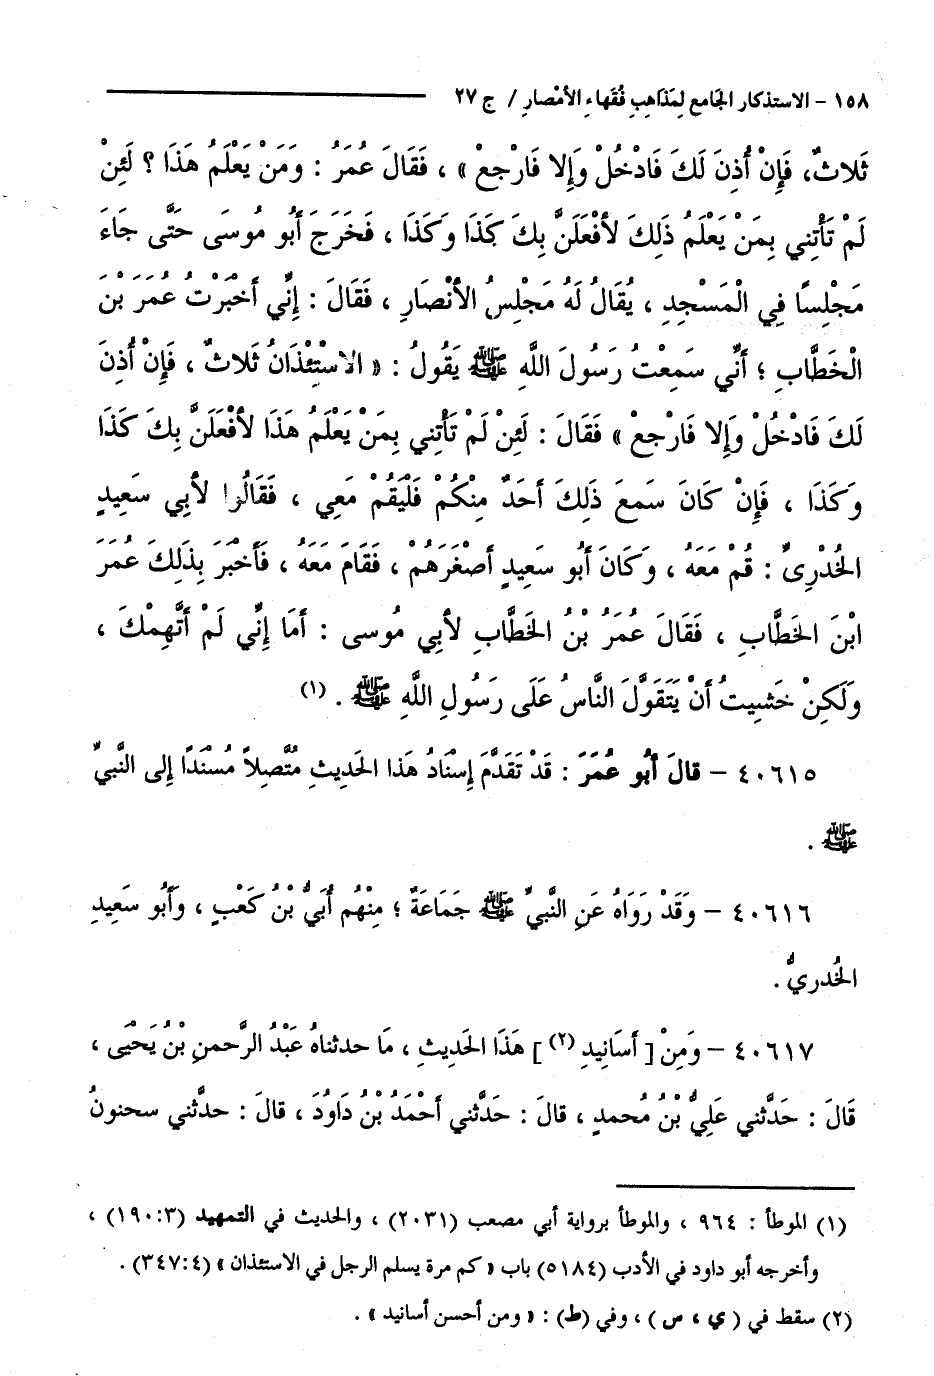 ١٥٨ - الاستذكار الجامع لِمَذاهِبِ فُقَهاءِ الأمْصارِ / ج ٢٧
ثَلاثٌ، فَإِنْ أُذِنَ لَكَ فَادْخُلْ وَإِلا فَارْجِعْ » ، فَقَالَ عُمَرُ : وَمَنْ يَعْلَمُ هَذَا ؟ لَئِنْ
لَمْ تَأْتِنِي بِمَنْ يَعْلَمُ ذَلِكَ لأفْعَلَنَّ بِكَ كَذَا وَكَذَا ، فَخَرَجَ أَبُو مُوسَى حَتَّى جَاءَ
مَجْلِسًا فِي الْمَسْجِدِ ، يُقَالُ لَهُ مَجْلِسُ الأنْصَارِ ، فَقَالَ : إِنِّي أَخْبَرْتُ عُمَرَ بْنَ
الْخَطَّابِ ؛ أَنِّي سَمِعْتُ رَسُولَ اللَّهِ ﷺ يَقُولُ : « الاسْتِئْذَانُ ثَلاثٌ ، فَإِنْ أُذِنَ
لَكَ فَادْخُلْ وَإِلا فَارْجِعْ » فَقَالَ : لَئِنْ لَمْ تَأْتِنِي بِمَنْ يَعْلَمُ هَذَا لأفْعَلَنَّ بِكَ كَذَا
وَكَذَا ، فَإِنْ كَانَ سَمِعَ ذَلِكَ أَحَدٌ مِنْكُمْ فَلْيَقُمْ مَعِي ، فَقَالُوا لأبِي سَعِيدٍ
الخُدْرِيِّ : قُمْ مَعَهُ ، وَكَانَ أَبُو سَعِيدٍ أَصْغَرَهُمْ ، فَقَامَ مَعَهُ ، فَأَخْبَرَ بِذَلِكَ عُمَرَ
ابْنَ الخَطَّابِ ، فَقَالَ عُمَرُ بْنُ الخَطَّابِ لأبِي مُوسى : أَمَا إِنِّي لَمْ أَتَّهِمْكَ ،
وَلَكِنْ خَشِيتُ أَنْ يَتَقَوَّلَ النَّاسُ عَلَى رَسُولِ اللَّهِ ﷺ . (١)
٤٠٦١٥ - قالَ أَبُو عُمَرَ : قَدْ تَقَدَّمَ إِسْنَادُ هَذَا الحَدِيثِ مُتَّصِلاً مُسْنَدًا إِلى النَّبِيِّ
ﷺ .
٤٠٦١٦ - وَقَدْ رَوَاهُ عَنِ النَّبِيِّ ﷺ جَمَاعَةٌ ؛ مِنْهُم أُبَيُّ بْنُ كَعْبٍ ، وَأَبُو سَعِيدٍ
الخُدرِيُّ .
٤٠٦١٧ - وَمِنْ [ أَسَانِيدِ (٢) ] هَذَا الحَدِيثِ ، مَا حدثناهُ عَبْدُ الرَّحمنِ بْنُ يَحْيَى ،
قَالَ : حَدَّثني عَلِيُّ بْنُ مُحمدٍ ، قالَ : حَدَّثني أَحْمَدُ بْنُ دَاوُدَ ، قالَ : حدَّثني سحنونُ
(١) الموطأ : ٩٦٤ ، والموطأ برواية أبي مصعب (٢٠٣١) ، والحديث في التمهيد (١٩٠:٣) ،
وأخرجه أبو داود في الأدب (٥١٨٤) باب « كم مرة يسلم الرجل في الاستئذان » (٣٤٧:٤) .
(٢) سقط في ( ي ، س ) ، وفي (ط) : « ومن أحسن أسانيد » .